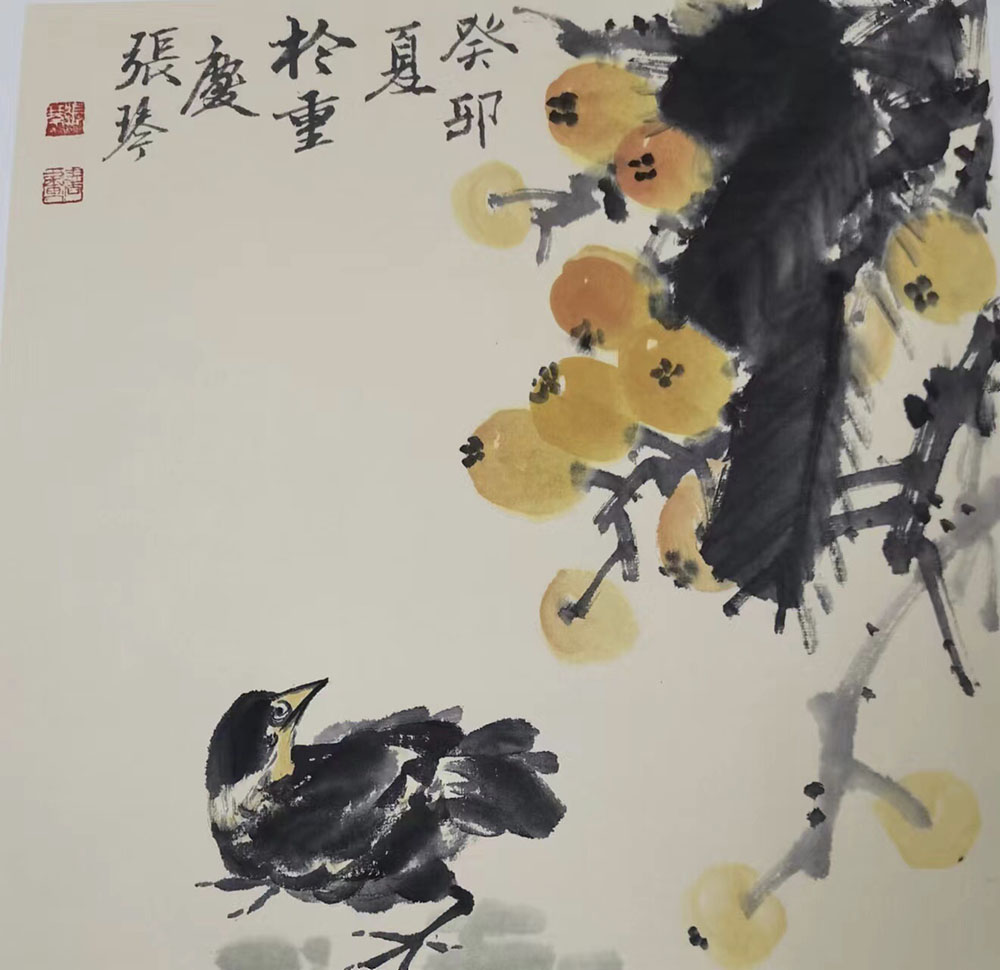 癸卯
夏
於重
慶
張琴